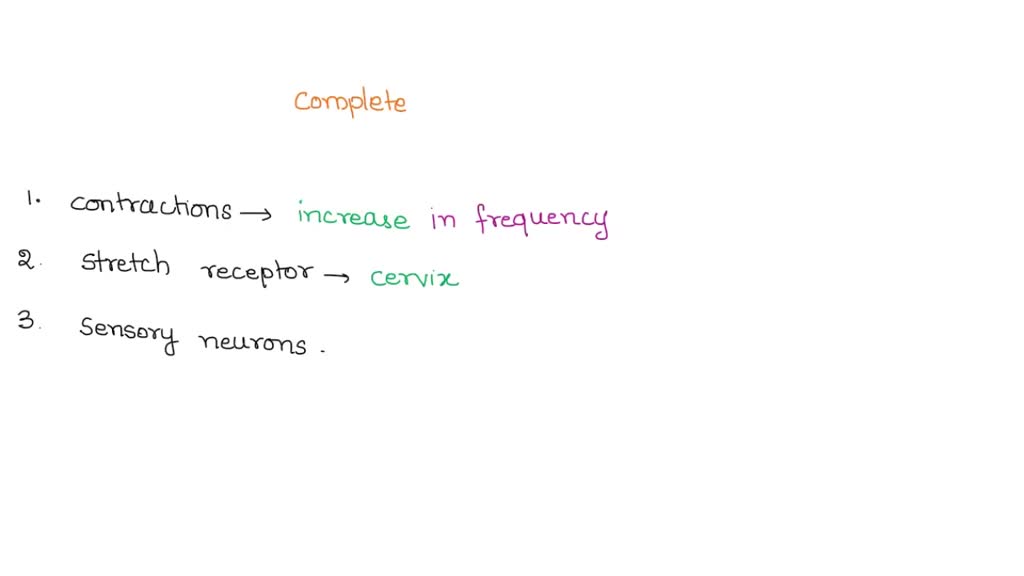 complete
1. contractions → increase in frequency
2. stretch receptor → cervix
3. sensory neurons.